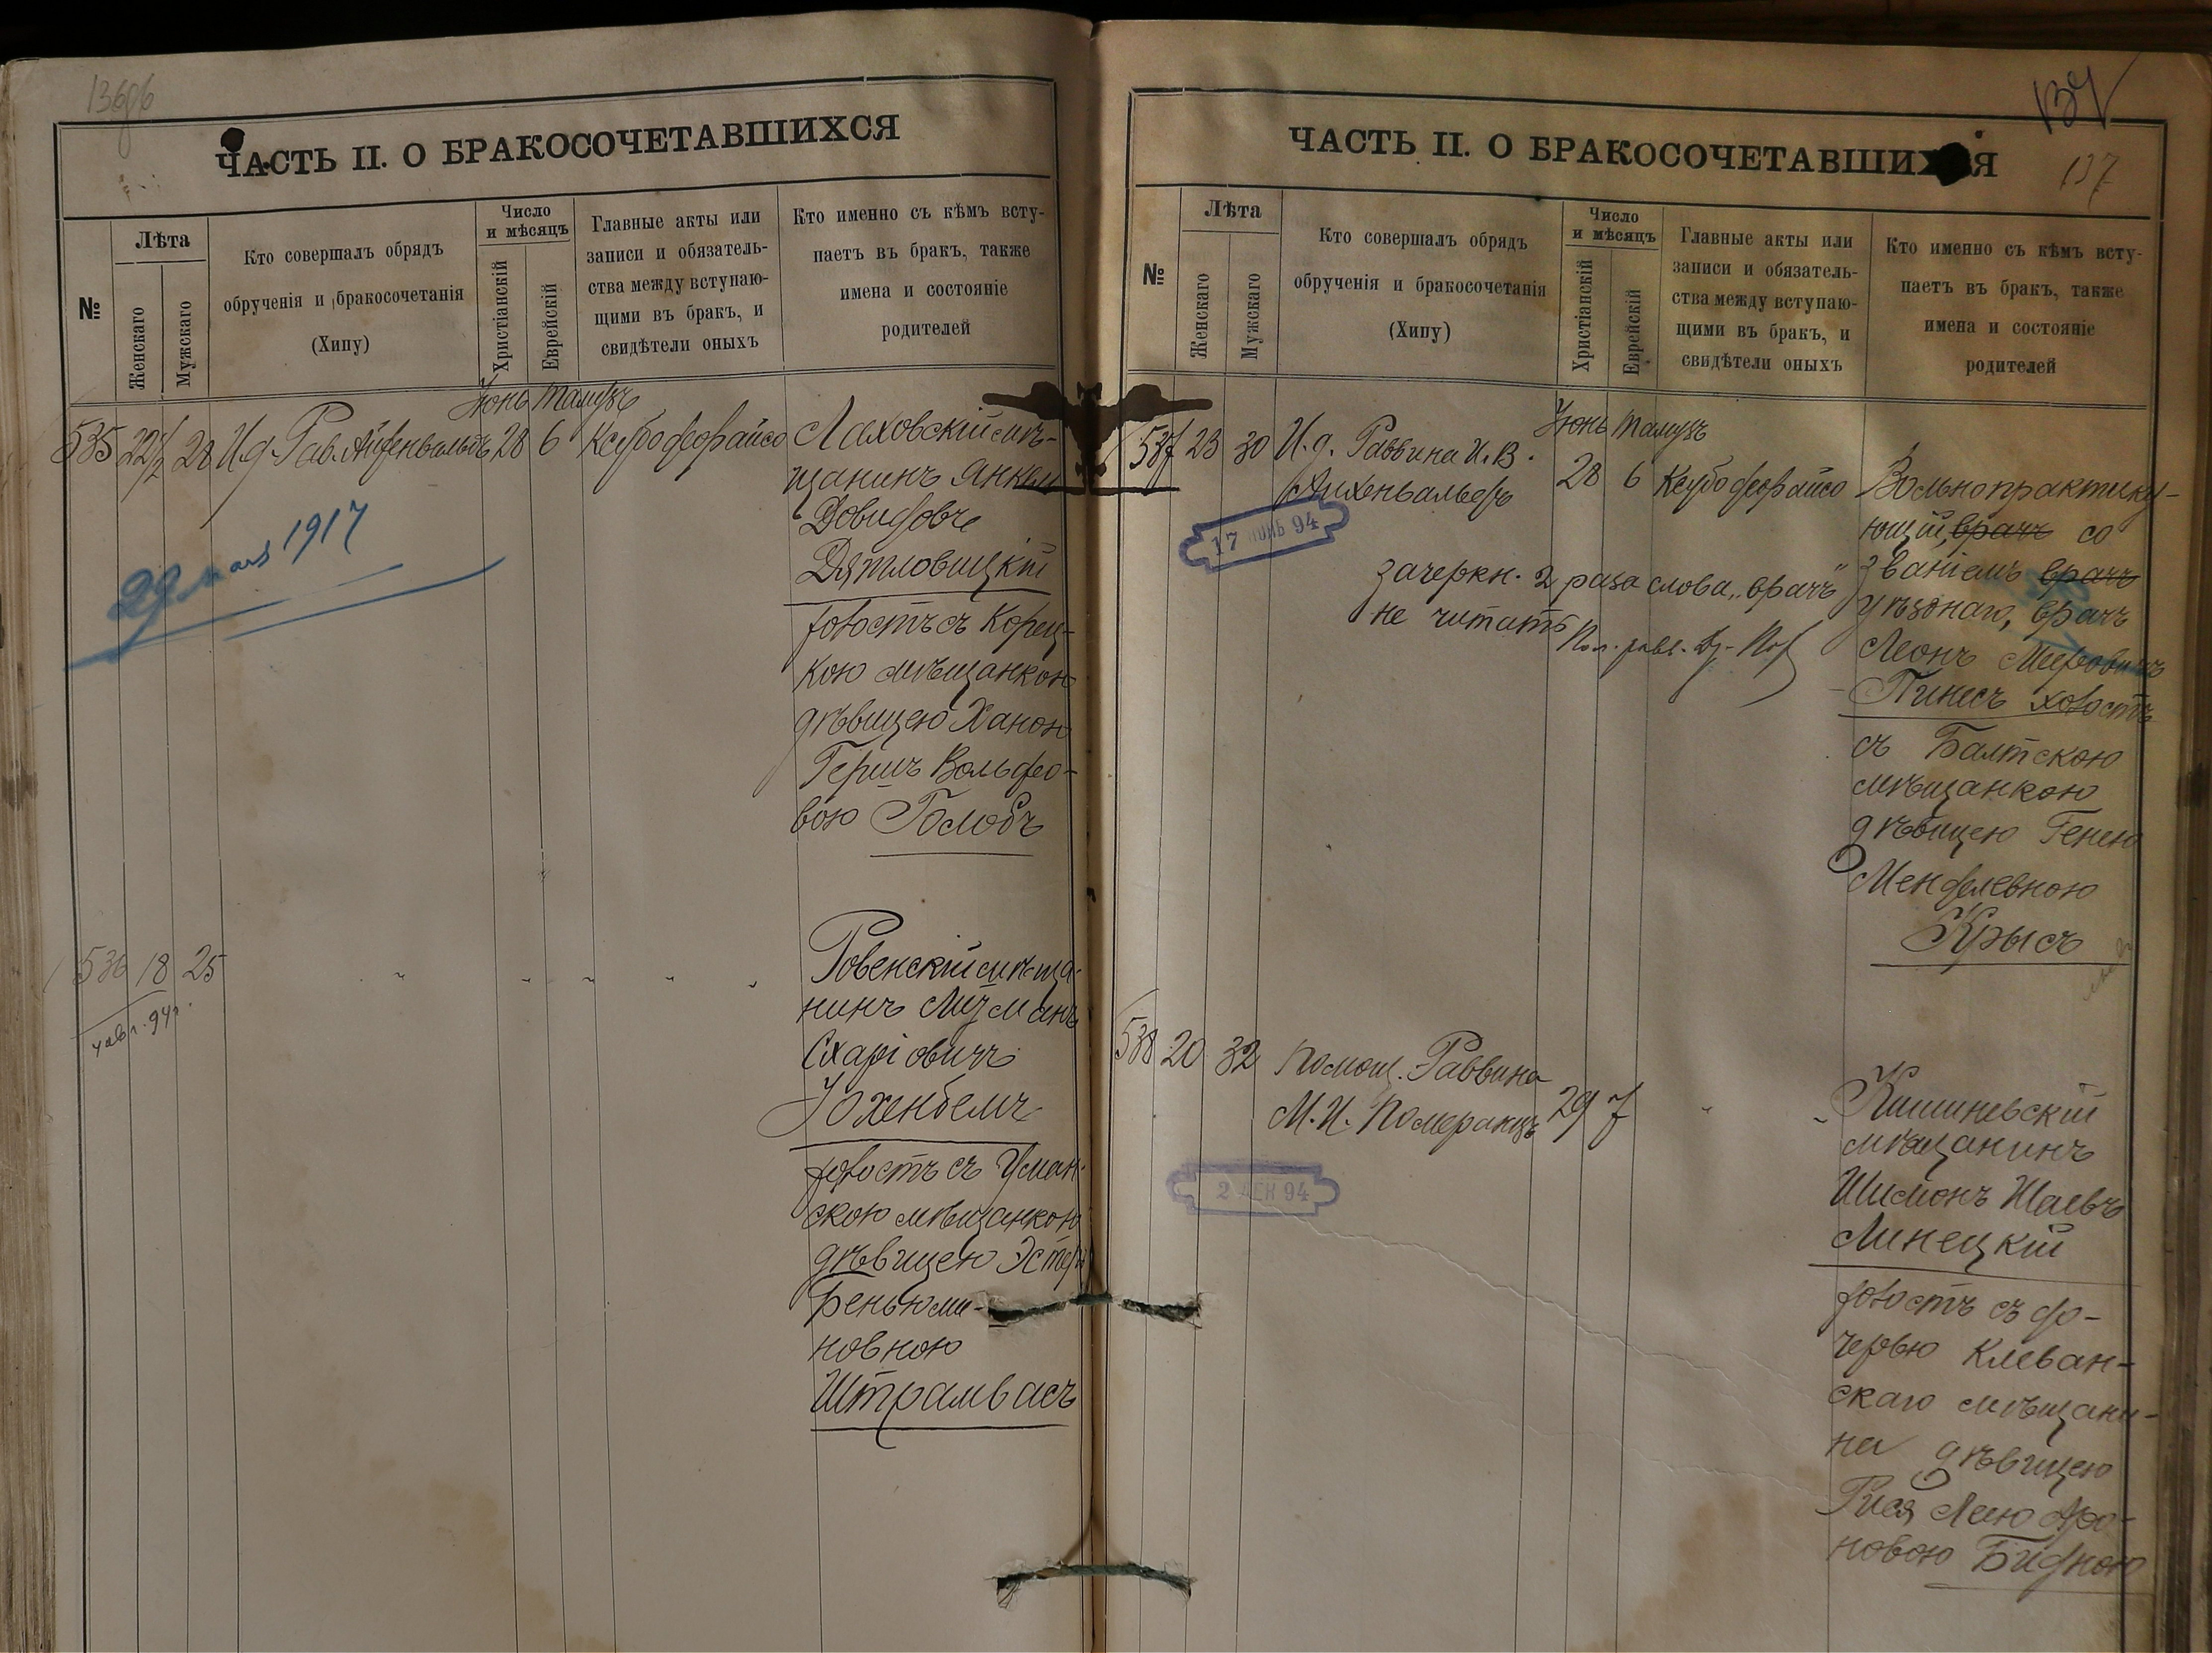 136об
ЧАСТЬ II. О БРАКОСОЧЕТАВШИХСЯ
№
Лѣта
Женскаго
Мужскаго
Кто совершалъ обрядъ
обрученія и бракосочетанія
(Хипу)
Число
и мѣсяцъ
Христіанскій
Еврейскій
Главные акты или
записи и обязатель-
ства между вступаю-
щими въ бракъ, и
свидѣтели оныхъ
Кто именно съ кѣмъ всту-
паетъ въ бракъ, также
имена и состояніе
родителей
Іюнь Тамузъ
535 22½ 28 И.д. Рав. Айхенвальдъ 28 6 Ксубо деорайсо
Ляховскій мѣ-
щанинъ Янкель
Довидовъ
Дятловицкій
холостъ съ Корец-
кою мѣщанкою
дѣвицею Ханою
Гершъ Вольфо-
вою Голобъ
29 мая 1917
536 18 25 " " " " "
Ровенскій мѣща-
нинъ
Схаріовичъ
Юхенбемъ
холостъ съ Уман-
скою мѣщанкою
дѣвицею Эстеръ
Беньями-
новною
Штрамвасъ
137
137
ЧАСТЬ II. О БРАКОСОЧЕТАВШИХСЯ
№
Лѣта
Женскаго
Мужскаго
Кто совершалъ обрядъ
обрученія и бракосочетанія
(Хипу)
Число
и мѣсяцъ
Христіанскій
Еврейскій
Главные акты или
записи и обязатель-
ства между вступаю-
щими въ бракъ, и
свидѣтели оныхъ
Кто именно съ кѣмъ всту-
паетъ въ бракъ, также
имена и состояніе
родителей
Іюнь Тамузъ
537 23 30 И.д. Раввина И.В.
Айхенвальдъ
28 6 Ксубо деорайсо
17 ІЮНЬ 94
зачеркн. 2 раза слова „врачъ"
не читать
Вольнопрактику-
ющій, врачъ со
званіемъ врачъ
уѣзднаго, врачъ
Леонъ Мееровичъ
Пинесъ холостъ
съ Балтскою
мѣщанкою
дѣвицею Генею
Менделевною
Крысъ
538 20 32 Помощ. Раввина
М.И. Померанцъ 29 7 "
94
Кишиневскій
мѣщанинъ
Шимонъ Шаевъ
Линецкій
холостъ съ до-
черью Клеван-
скаго мѣщани-
на дѣвицею
Рися Леею Аро-
новою Бидною